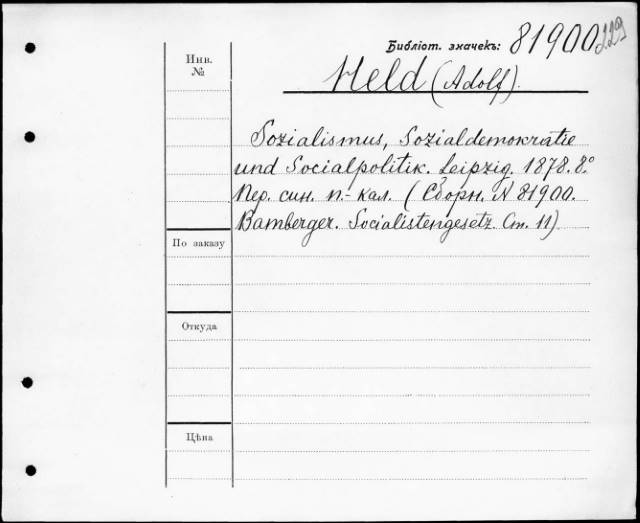 Библіот. значекъ: 81900 229
Инв.
№
Held (Adolf).
Sozialismus, Sozialdemokratie
und Socialpolitik. Leipzig. 1878. 8.°
Пер. син. п.-кал. (Сборн. N 81900.
Bamberger. Socialistengesetz. Ст. 11)
По заказу
Откуда
Цѣна